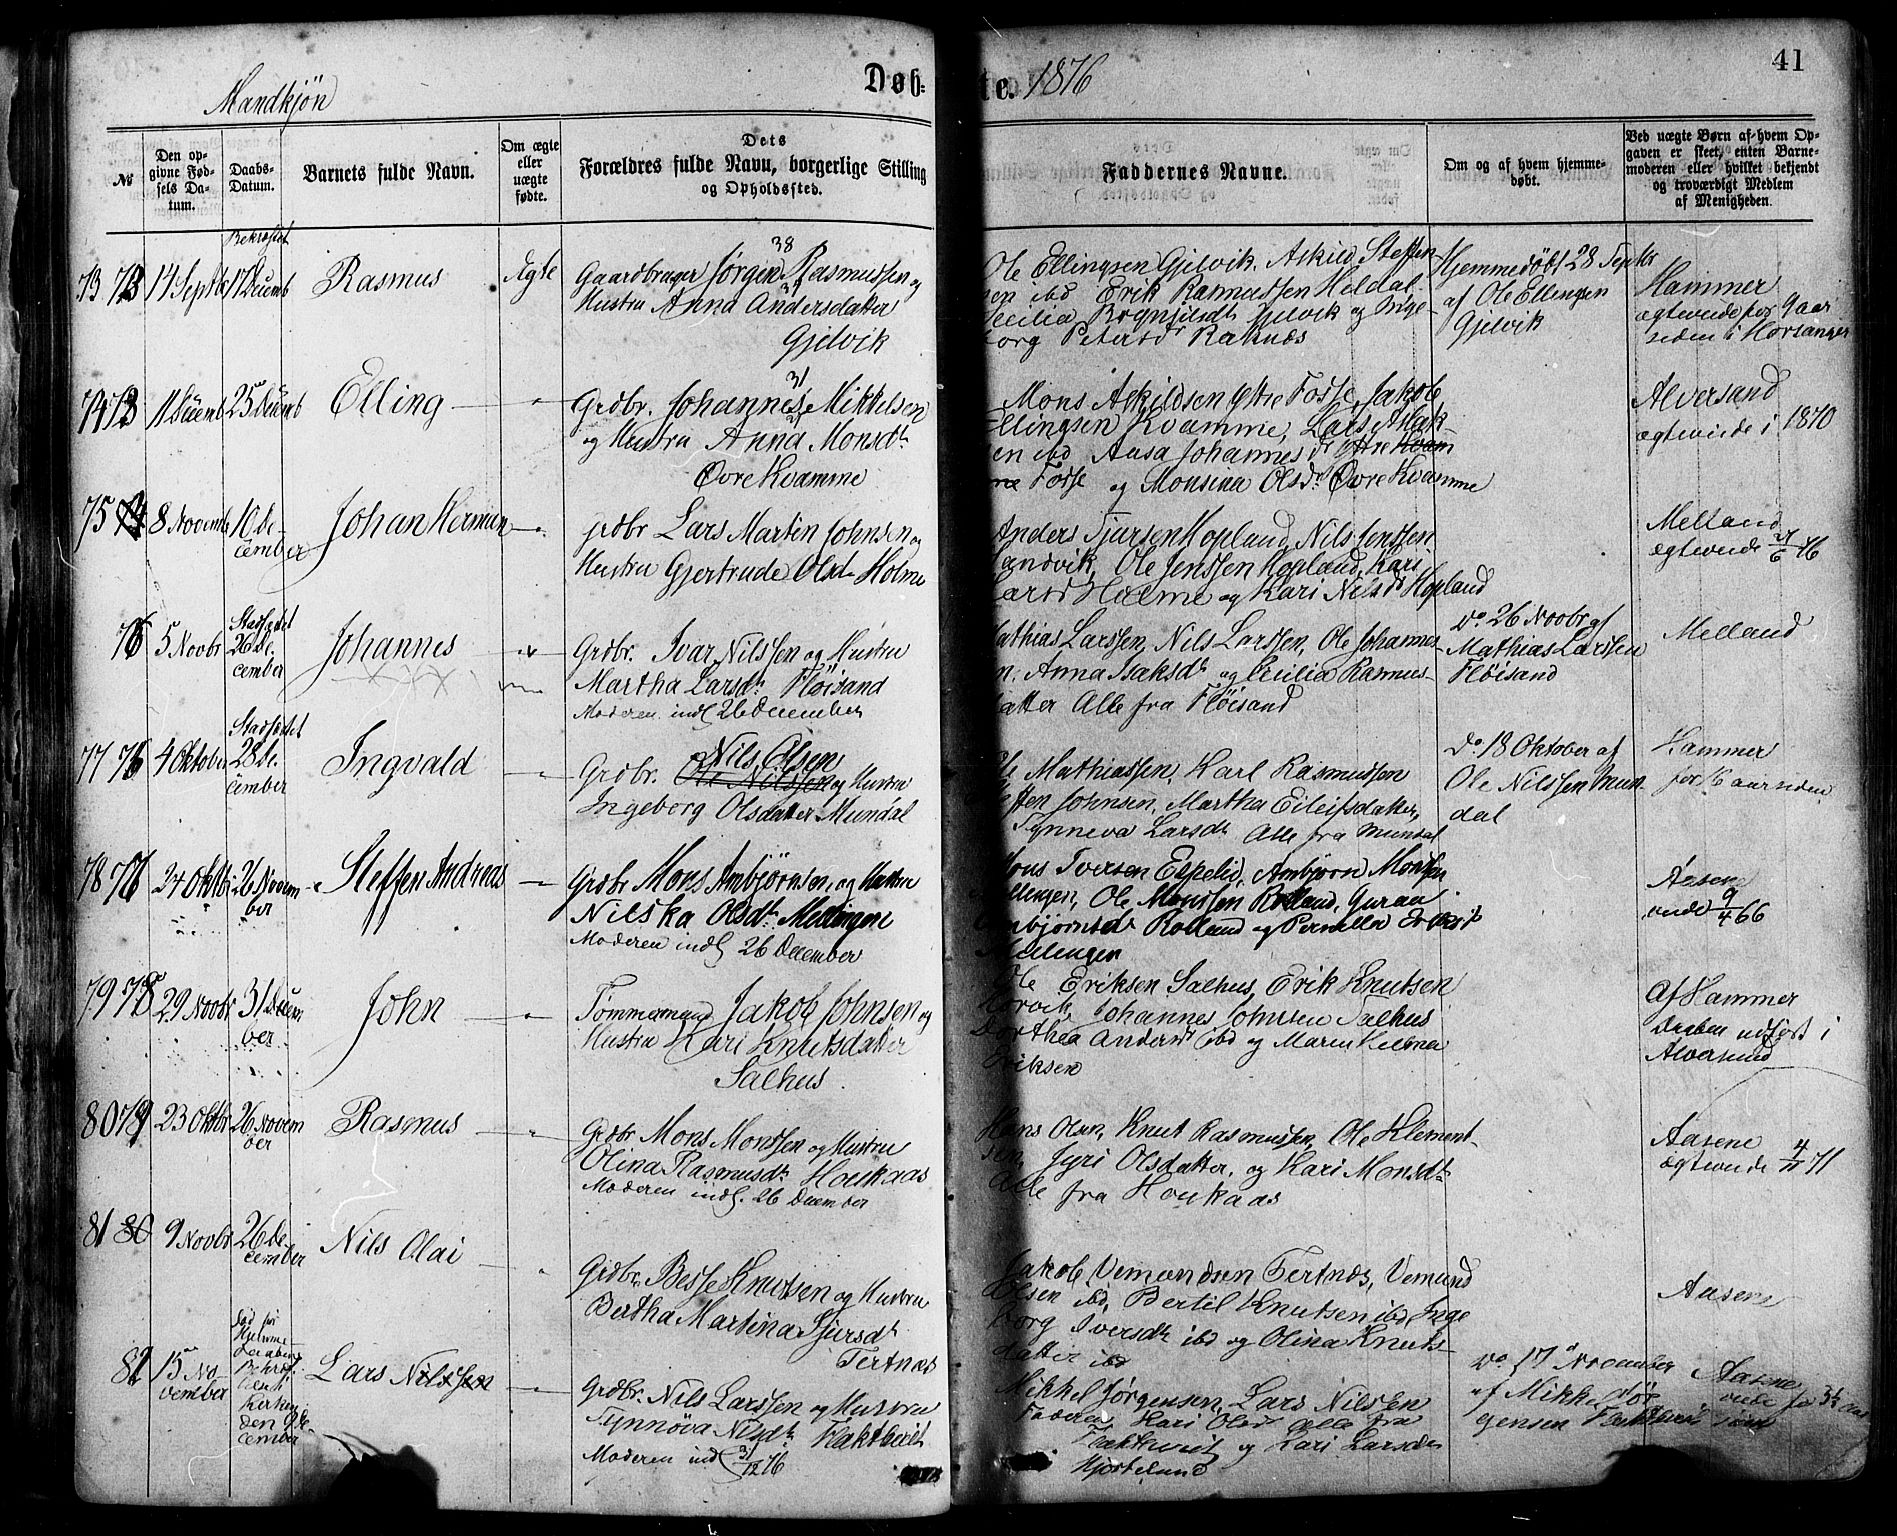 41
Mandkjön
Døb-
te. 1876
No
Den opgivne Fødsels Datum.
Daabs-Datum.
Barnets fulde Navn.
Om ægte eller uægte fødte.
Dets Forældres fulde Navn, borgerlige Stilling og Opholdssted.
Faddernes Navne.
Om og af hvem hjemmedøbt.
Ved uægte Børn af hvem Opgaven er skeet, enten Barnemoderen eller hvilket bekjendt og troværdigt Medlem af Menigheden.
73
14 Septbr
Bekræftet
17 Decemb
Rasmus
Ægte
38
Gaardbruger Jørgen Rasmussen og
Hustru Anna Andersdatter
Gjelvik
Ole Ellingsen Gjelvik. Askild Steffen
sen ibd Erik Rasmussen Heldal.
Cecilia Gjelvik og Inge-
borg Petersd Raknæs
Hjemmedøbt 28 Septbr
af Ole Ellingsen
Gjelvik
Hammer
ægteviede for 9 aar
siden i Hosanger
74
11 Decemb
25 Decemb
Elling
31
Grdbr. Johannes Mikkelsen
og Hustru Anna Monsdt
Øvre Kvamme
Mons Askildsen Ytre Fosse, Jakob
Ellingsen Kvamme, Lars Aslak-
sen ibd Aasa Johannesdt Ytre Kvam
me Fosse og Monsena Olsdt Øvre Kvamme
Alversund
ægteviede i 1870
75
8 Novemb
10 De-
cember
Johan Herman
Grdbr Lars Martin Johnsen og
Hustru Gjertrude Olsdr Holme
Anders Sjursen Hopland, Nils Jenssen
Sandvik, Ole Jenssen Hopland, Kari
Larsd Holme og Kari Nilsd Hopland
Melland
ægteviede 21/6 76
76
5 Novbr
Stadfæstet
26 De-
cember
Johannes
Grdbr. Ivar Nilssen og Hustru
Martha Larsdt Fløisand
Moderen indl 26 December
Mathias Larssen, Nils Larssen, Ole Johannes-
sen. Anna Isaksdt og Cecilia Rasmus-
datter Alle fra Fløisand
Do 26 Novbr af
Mathias Larssen
Fløisand
Melland
77
4 Oktober
Stadfæstet
28 De-
cember
Ingvald
Nils Olsen
Grdbr. Ole Nilssen og Hustru
Ingeborg Olsdatter Mundal
Ole Mathiassen, Karl Rasmussen
Steffen Johnsen, Martha Eileifsdatter,
Synneva Larsdt Alle fra Mundal
Do 18 Oktober af
Ole Nilssen Mun
dal
Hammer
for 16 aar siden
78
24 Oktbr
26 Novem-
ber
Steffen Andreas
Grdbr Mons Ambjørnsen og Hustru
Nilska Olsdt Mellingen
Moderen indl 26 December
Mons Iversen Espelid, Ambjørn Monsen
Mellingen, Ole Monssen Rolland, Guraa
Ambjørnsdt Rolland og Pernilla Eriksdt
Mellingen
Aasene
viede 9/4 66
79
29 Novbr
31 Decem-
ber
John
Tømmermand Jakob Johnsen og
Hustru Kari Knutsdatter
Salhus
Ole Eriksen Salhus, Erik Knutsen
Johannes Johnsen Salhus
Dorthea Andersdt ibd og Maren
Eriksen
Af Hammer
Daaben udført i
Alversund
80
23 Oktbr
26 Novem
ber
Rasmus
Grdbr Mons Monssen og Hustru
Olina Rasmusdt Houkaas
Moderen indl. 26 December
Hans Olsen, Knut Rasmussen, Ole Klement-
sen, Jyri Olsdatter, og Kari Monsdt
Alle fra Houkaas
Aasene
ægteviede 4/11 71
81 80
9 Novbr
26 De-
cember
Nils Olai
Grdbr. Besse Knutsen og Hustru
Bertha Martina Sjursdt
Tertnæs
Jakob Vemundsen Tertnæs, Vemund
Olsen ibd, Bertil Knutsen ibd, Inge
borg Iversdt ibd og Olina Knuts-
datter ibd
Aasene
82
15 No-
vember
Kirken
den 9 De
cember
Lars Nilssen
Grdbr. Nils Larssen og Hustru
Synnöva Nilsdt Flaktveit
Moderen indl 31/12 76
Mikkel Jørgensen, Lars Nilssen
Faderen, Kari Olsd Alle fra
Flaktveit og Kari Larsdr
Hjortland
Do 17 November
af Mikkel Jør
gensen Flaktveit
Aasene
viede for 3½ Aar
siden